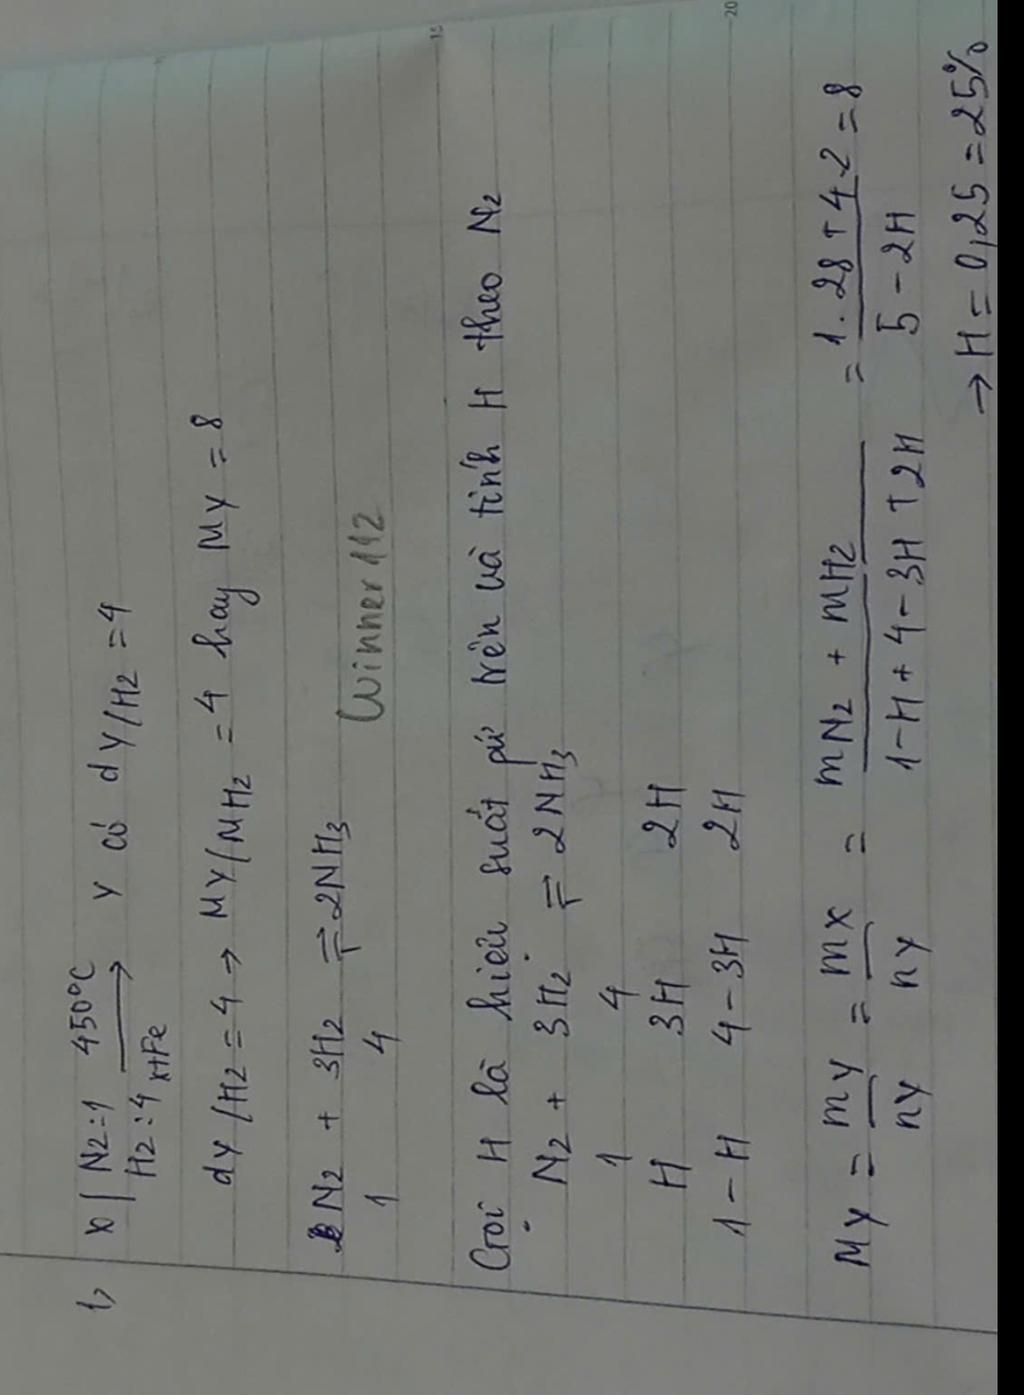 1,
X | N2:1 450°C Y có dY/H2 = 4
H2:4 xtFe
dY/H2 = 4 → MY/MH2 = 4 hay MY = 8
N2 + 3H2 ⇌ 2NH3
1 4
Winner112
Gọi H là hiệu suất pứ trên và tính H theo N2
N2 + 3H2 ⇌ 2NH3
1 4
H 3H 2H
1-H 4-3H 2H
MY = mY/nY = mX/nY = (mN2 + mH2)/(1-H+4-3H+2H) = (1.28+4.2)/(5-2H) = 8
→ H = 0,25 = 25%
15
20